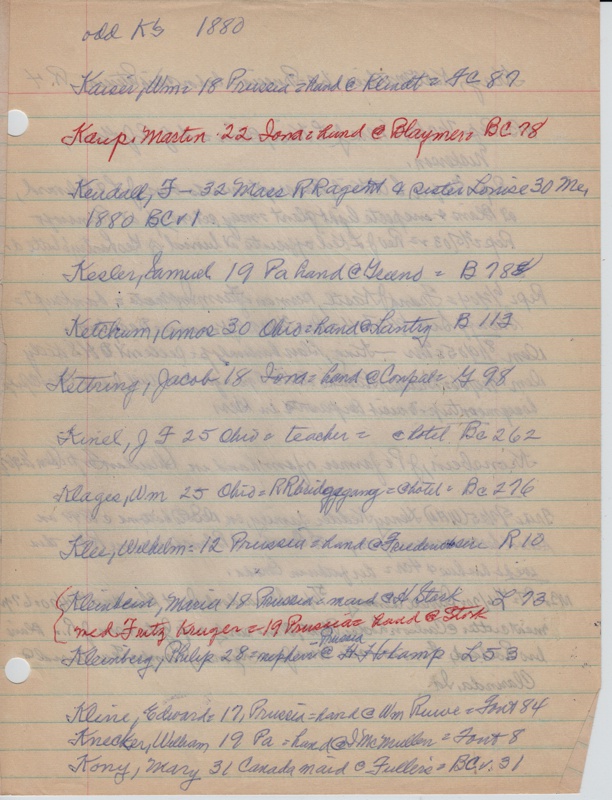 odd K's 1880
Kaiser, Wm = 18 Prussia = hand @ Klindt = FC 87
Kaup, Martin 22 Iowa = hand @ Blaymer = BC 78
Kendall, F - 32 Mass RR agent & sister Louise 30 Me,
1880 BCv 1
Kesler, Samuel 19 Pa hand @ = B 78
Ketchum, Amos 30 Ohio = hand @ Lantry B 113
Kettring, Jacob 18 Iowa = hand @ = G 98
Kinel, J F 25 Ohio = teacher = @ hotel Bc 262
Klages, Wm 25 Ohio = RR bridge gang = @ hotel = Bc 276
Klee, Wilhelm = 12 Prussia = hand @ R 10
Kleinbein, Maria 18 Prussia = maid @ H Stork L 73
med Fritz Kruger = 19 Prussia = hand @ Stork
Kleinberg, Philip 28 = Prussia nephew @ H Hokamp L 53
Kline, Edward = 17, Prussia = hand @ Wm Ruwe = Font 84
Knecker, William 19 Pa = hand @ J McMullen = Font 8
Kony, Mary 31 Canada maid @ Fuller's = BCv. 31